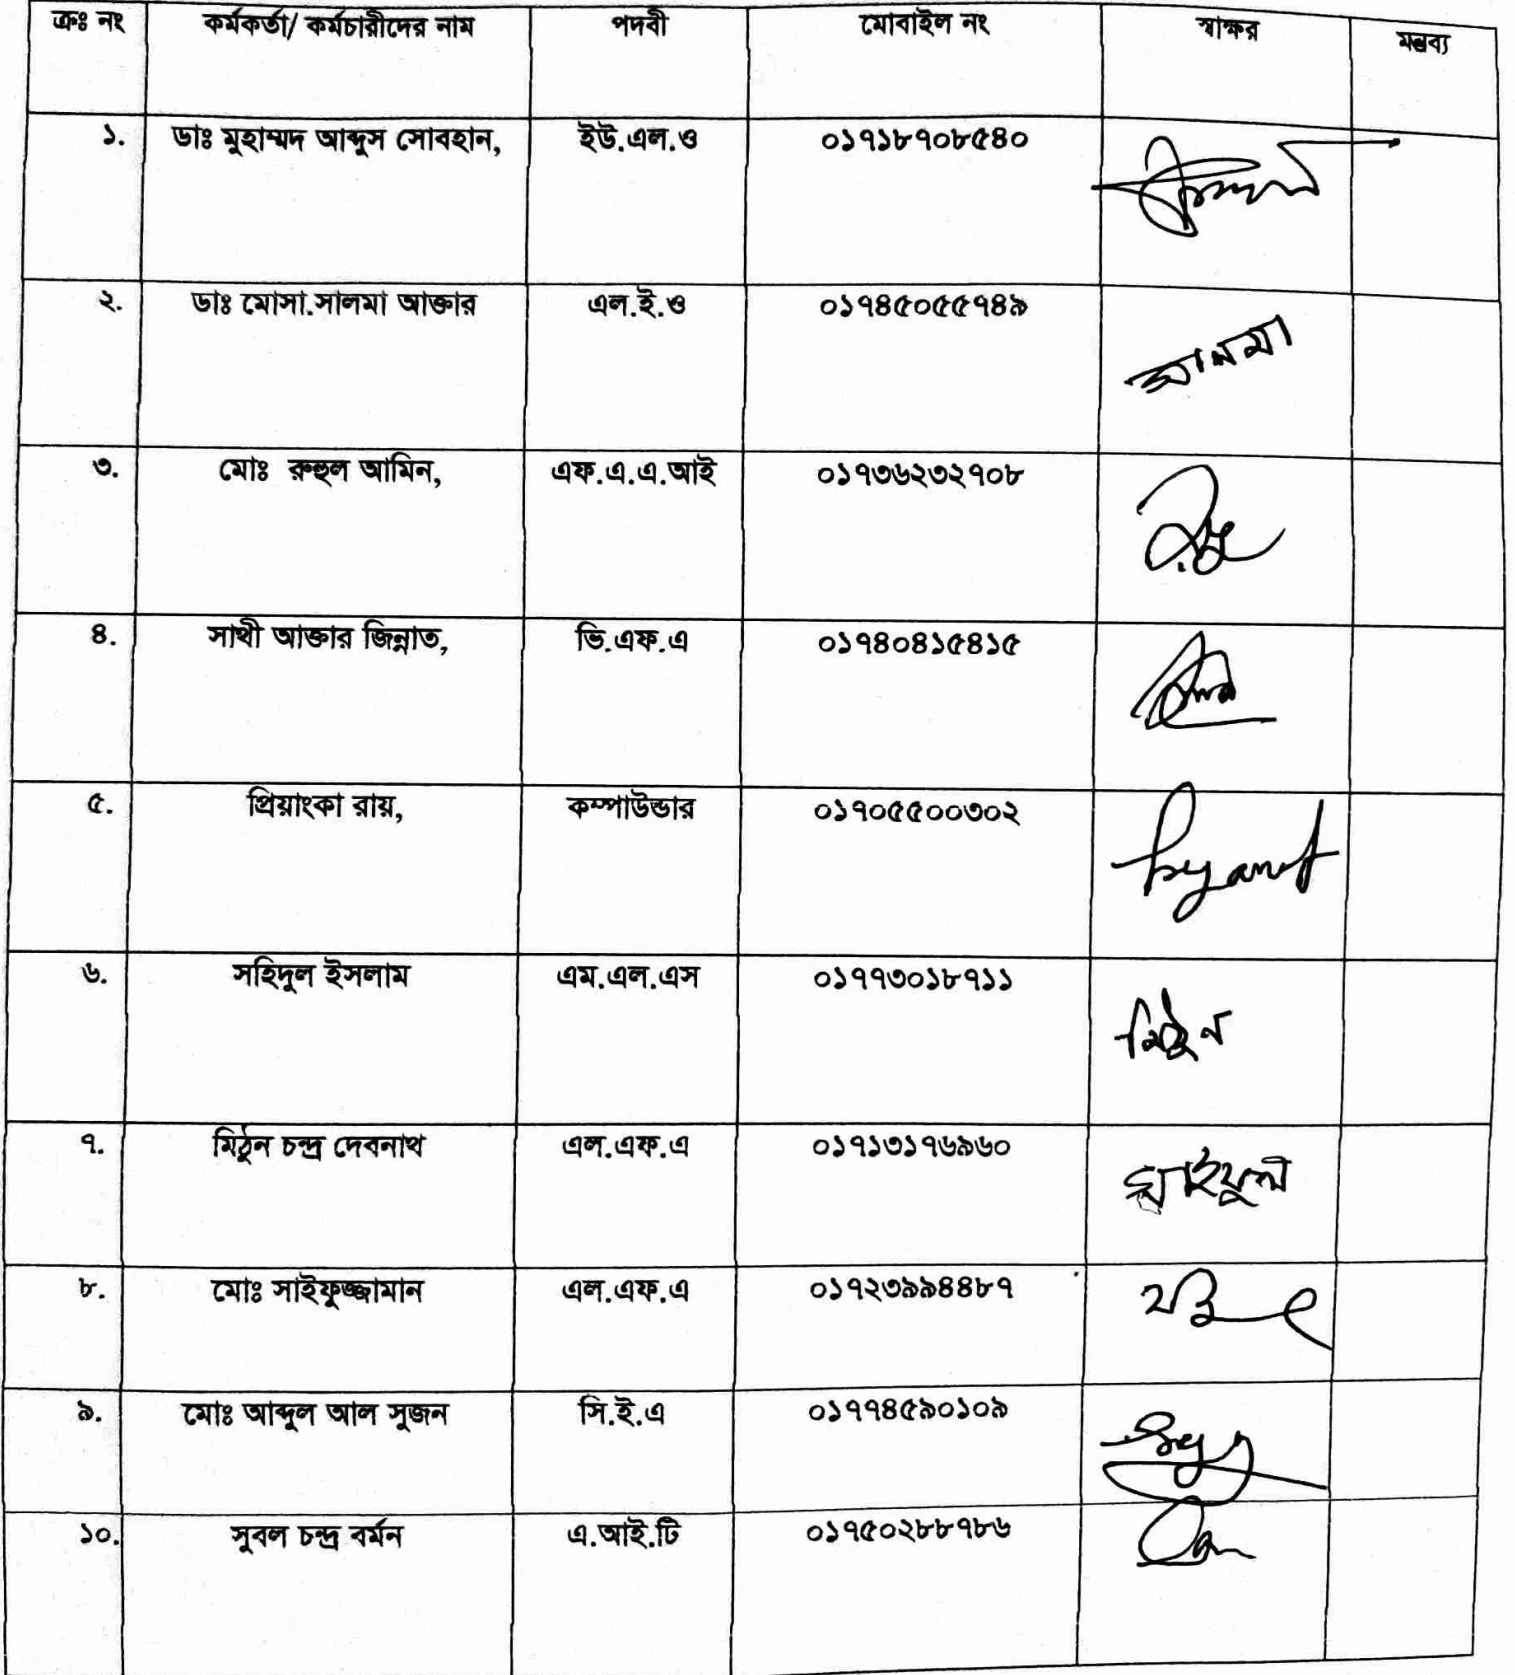 ক্রঃ নং কর্মকর্তা/ কর্মচারীদের নাম পদবী মোবাইল নং স্বাক্ষর মন্তব্য
১. ডাঃ মুহাম্মদ আব্দুস সোবহান, ইউ.এল.ও ০১৭১৮৭০৮৫৪০
২. ডাঃ মোসা.সালমা আক্তার এল.ই.ও ০১৭৪৫০৫৫৭৪৯ সালমা
৩. মোঃ রুহুল আমিন, এফ.এ.এ.আই ০১৭৩৬২৩২৭০৮
৪. সাথী আক্তার জিন্নাত, ভি.এফ.এ ০১৭৪০৪১৫৪১৫
৫. প্রিয়াংকা রায়, কম্পাউন্ডার ০১৭০৫৫০০৩০২
৬. সহিদুল ইসলাম এম.এল.এস ০১৭৭৩০১৮৭১১ মিঠুন
৭. মিঠুন চন্দ্র দেবনাথ এল.এফ.এ ০১৭১৩১৭৬৯৬০ সাইফুল
৮. মোঃ সাইফুজ্জামান এল.এফ.এ ০১৭২৩৯৯৪৪৮৭
৯. মোঃ আব্দুল আল সুজন সি.ই.এ ০১৭৭৪৫৯০১০৯
১০. সুবল চন্দ্র বর্মন এ.আই.টি ০১৭৫০২৮৮৭৮৬